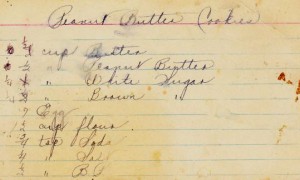 Peanut Butter Cookies
cup Butter
" Peanut Butter
" White Sugar
" Brown "
Egg
cup flour.
tsp Soda
" Salt
" B.P.